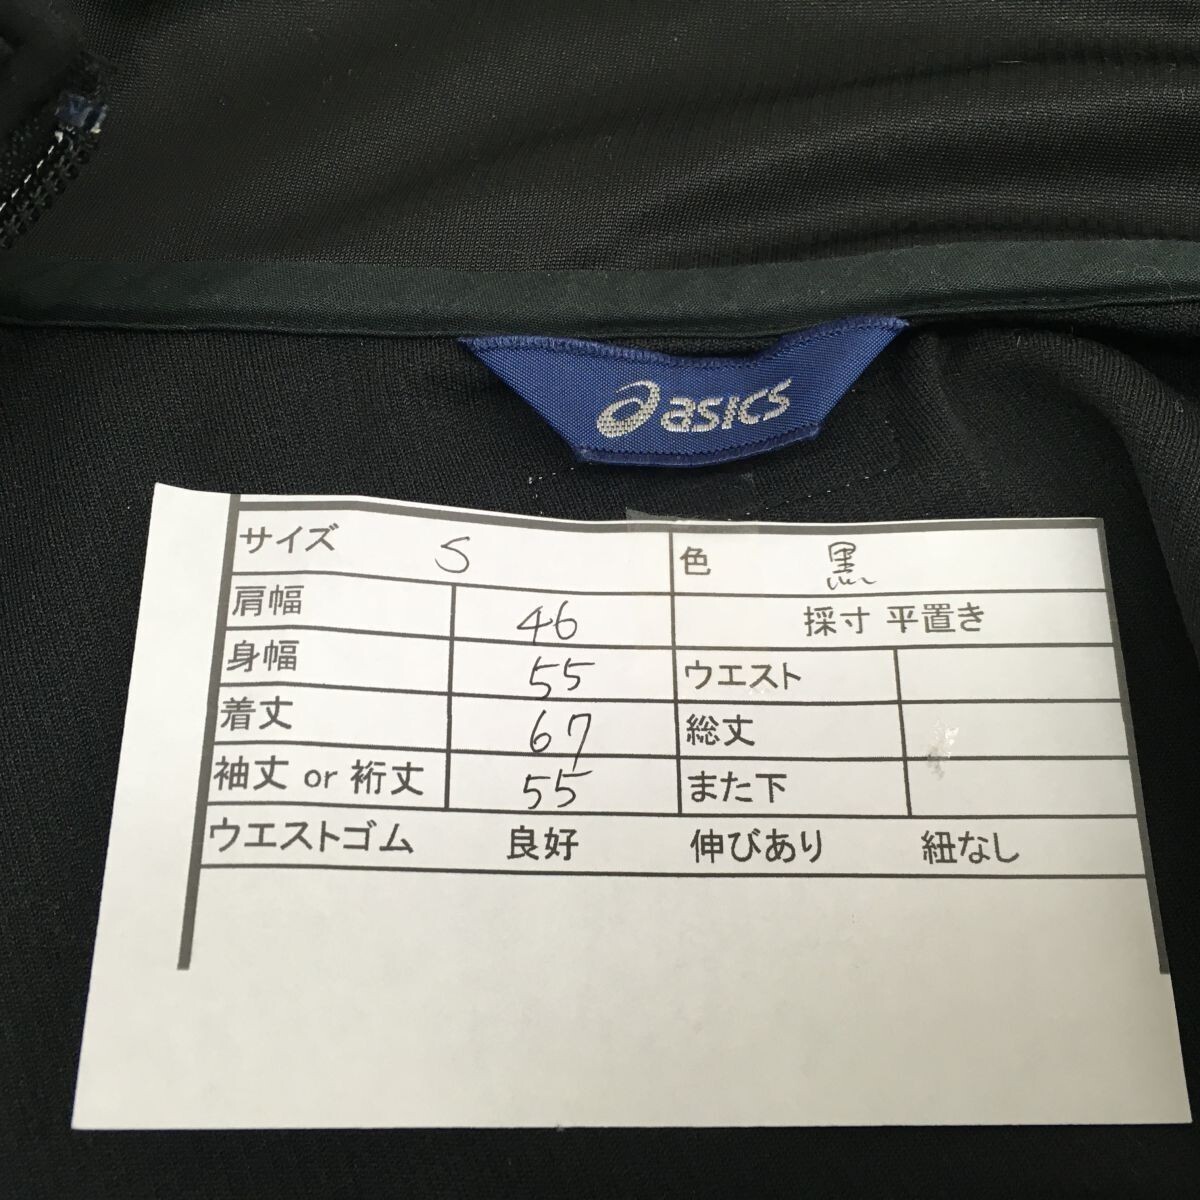 asics
サイズ S 色 黒
肩幅 46 採寸 平置き
身幅 55 ウエスト
着丈 67 総丈
袖丈 or 裄丈 55 また下
ウエストゴム 良好 伸びあり 紐なし